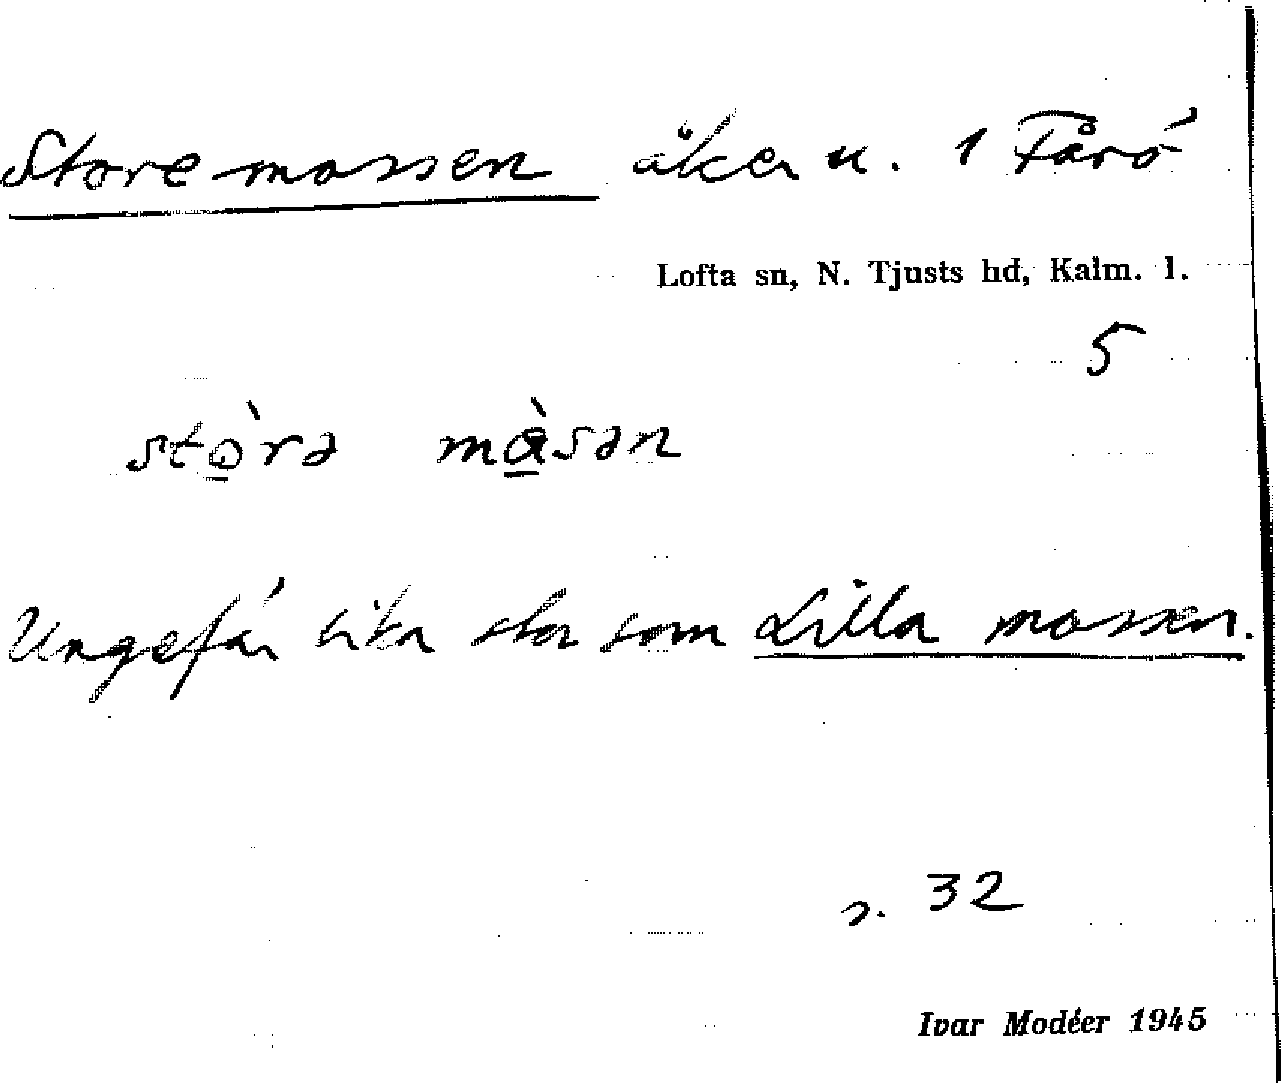 Store mossen åker u. 1 Fårö
Lofta sn, N. Tjusts hd, Kalm. l.
5
stò̲rə mɑ̲̀sən
Ungefär lika stor som Lilla mossen.
s. 32
Ivar Modéer 1945